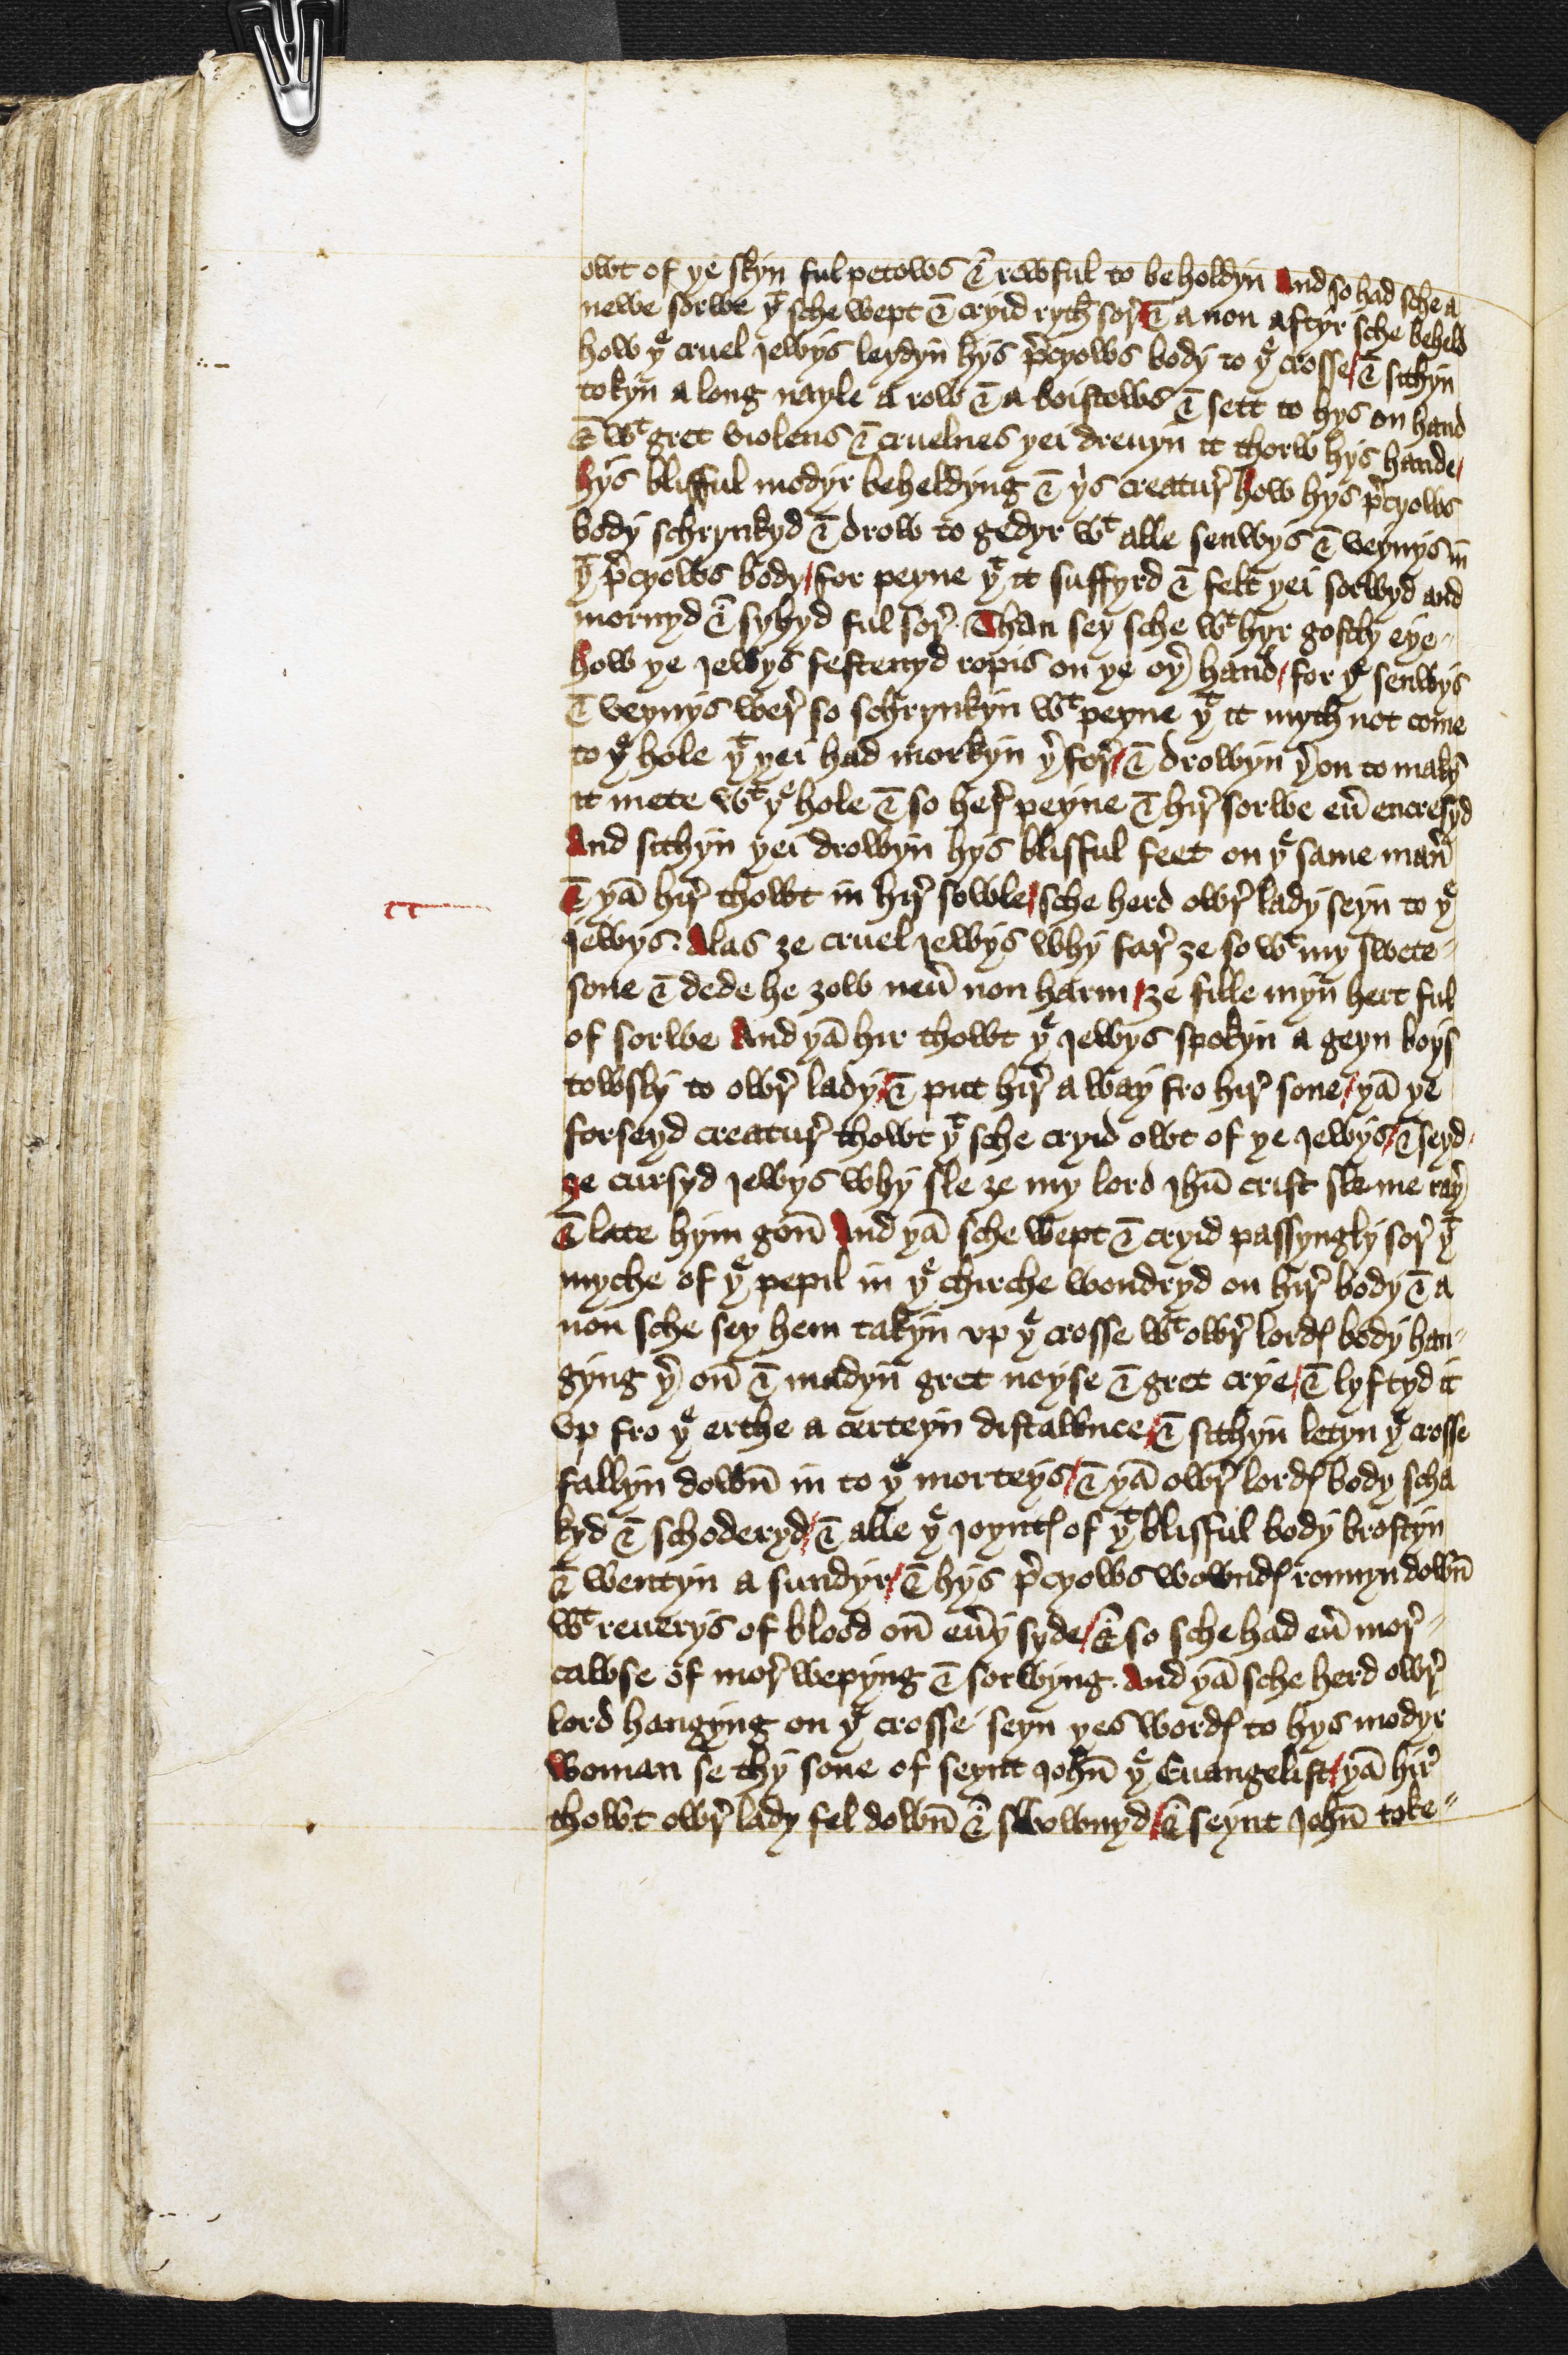 owt of þe skyn ful petows & rewful to beholdyn And so had sche a
newe sorwe þᵗ sche wept & cryid ryth sor̉ & a non aftyr sche beheld
how þᵉ cruel Jewys leydyn hys p̉cyows body to þᵉ crosse / & sithyn
tokyn a long nayle a row & a boistows & sett to hys on hand
& wᵗ gret violens & cruelnes þei dreuyn it thorw hys hande /
hys blisful modyr beheldyng & þis creatur̉ how hys p̉cyows
body schrynkyd & drow to gedyr wᵗ alle senwys & veynys in
þᵗ p̉cyows body / for peyne þᵗ it suffyrd & felt þei sorwyd and
mornyd & syhyd ful sor̉. Than sey sche wᵗ hyr gostly eye -
how þe Jewys festenyd ropis on þe oþ̉ hand / for þᵉ senwys
& veynys wer̉ so schrynkyn wᵗ peyne þᵗ it myth not come
to þᵉ hole þᵗ þei had morkyn þ̉ for̉ / & drowyn þ̉ on to mak̉
it mete wᵗ þᵉ hole & so her̉ peyne & hir̉ sorwe eủ encresyd
And sithyn þei drowyn hys blisful feet on þᵉ same man̉
& þā hir̉ thowt in hir̉ sowle / sche herd owr̉ lady seyn to þᵉ
Jewys. Alas ze cruel Jewys why far̉ ze so wᵗ my swete -
sone & dede he zow neủ non harm / ze fille myn hert ful
of sorwe And þā hir thowt þᵉ Jewys spokyn a geyn boys
towsly to owr̉ lady / & put hir̉ a way fro hir̉ sone / þā þe
forseyd creatur̉ thowt þᵗ sche cryid owt of þe Jewys / & seyd /
ze cursyd Jewys why sle ze my lord Jhū crist sle me raþ̉
& late hym gon̄ And þā sche wept & cryid passyngly sor̉ þᵗ
myche of þᵉ pepil in þᵉ chirche wondryd on hir̉ body & a
non sche sey hem takyn vp þᵉ crosse wᵗ owr̉ lordꝭ body han-
gyng þ̉ on̄ & madyn gret noyse & gret crye / & lyftyd it
vp fro þᵉ erthe a certeyn distawnce / & sithyn letyn þᵉ crosse
fallyn down̄ in to þᵉ morteys / & þā owr̉ lordꝭ body scha
kyd & schoderyd / & alle þᵉ Joyntꝭ of þᵗ blisful body brostyn
& wentyn a sundyr / & hys p̉cyows wowndꝭ ronnyn down̄
wᵗ reuerys of blood on̄ eủy syde / & so sche had eủ mor̉ -
cawse of mor̉ wepyng & sorwyng. And þā sche herd owr̉
lord hangyng on þᵉ crosse seyn þes wordꝭ to hys modyr
Woman se thy sone of seynt John̄ þᵉ Euangelist / þā hir̉
thowt owr̉ lady fel down̄ & swownyd / & seynt John̄ toke -